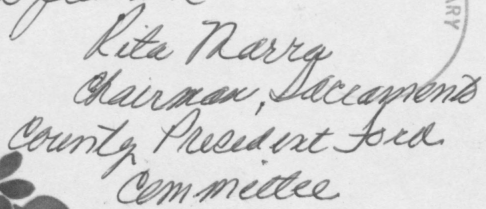 Rita Marra
Chairman, Sacramento
County President Ford
Committee